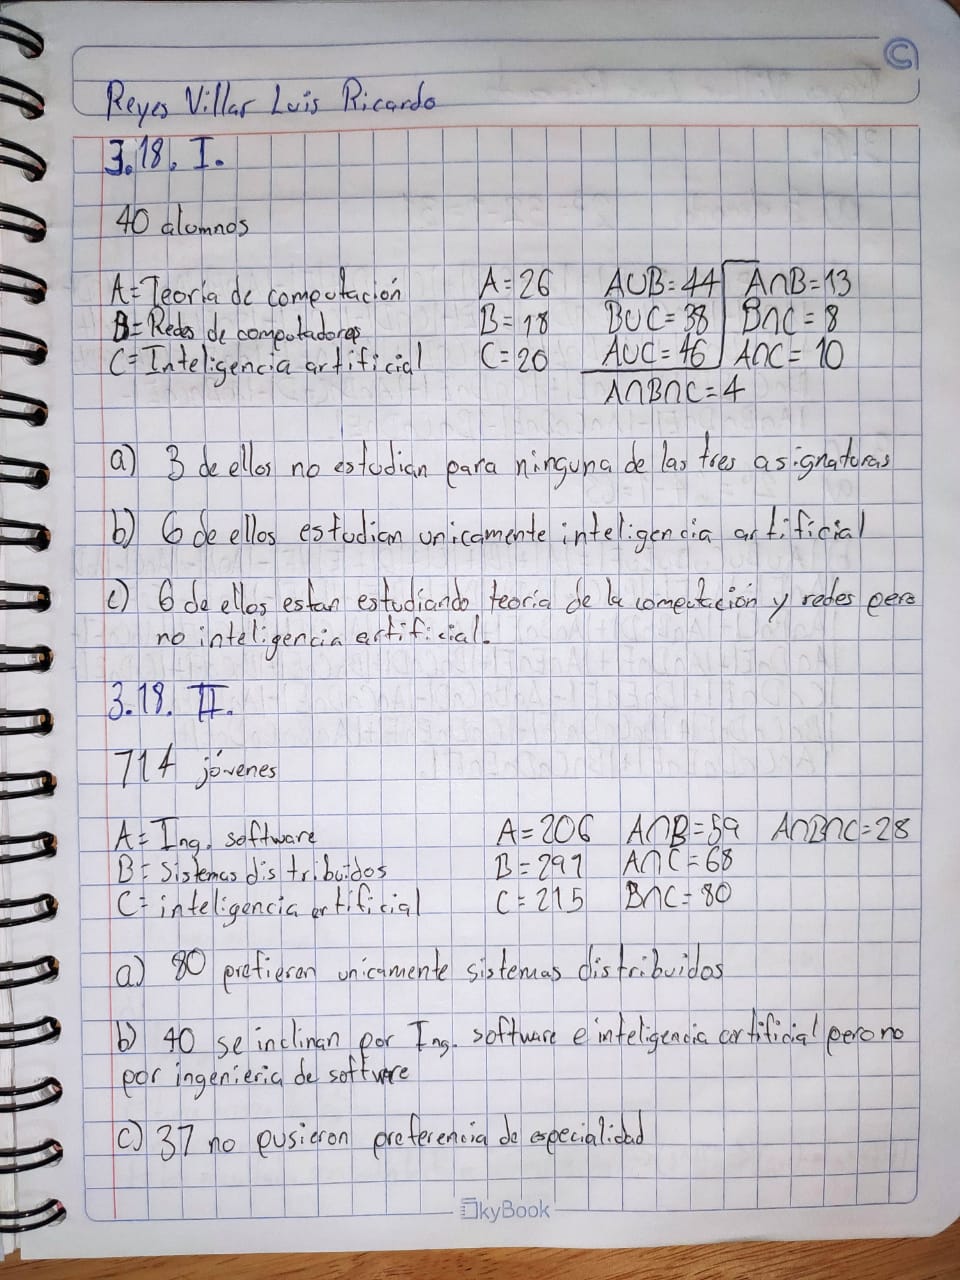 Reyes Villar Luis Ricardo
3.18. I.
40 alumnos
A= Teoría de computación A=26 A∪B=44 A∩B=13
B= Redes de computadoras B=18 B∪C=38 B∩C=8
C= Inteligencia artificial C=20 A∪C=46 A∩C=10
A∩B∩C=4
a) 3 de ellos no estudian para ninguna de las tres asignaturas
b) 6 de ellos estudian unicamente inteligencia artificial
c) 6 de ellos estan estudiando teoría de la computación y redes pero
no inteligencia artificial.
3.18. II.
714 jóvenes
A= Ing. software A=206 A∩B=59 A∩B∩C=28
B= Sistemas distribuidos B=291 A∩C=68
C= inteligencia artificial C=215 B∩C=80
a) 80 prefieren unicamente sistemas distribuidos
b) 40 se inclinan por Ing. software e inteligencia artificial pero no
por ingenieria de software
c) 37 no pusieron preferencia de especialidad
SkyBook